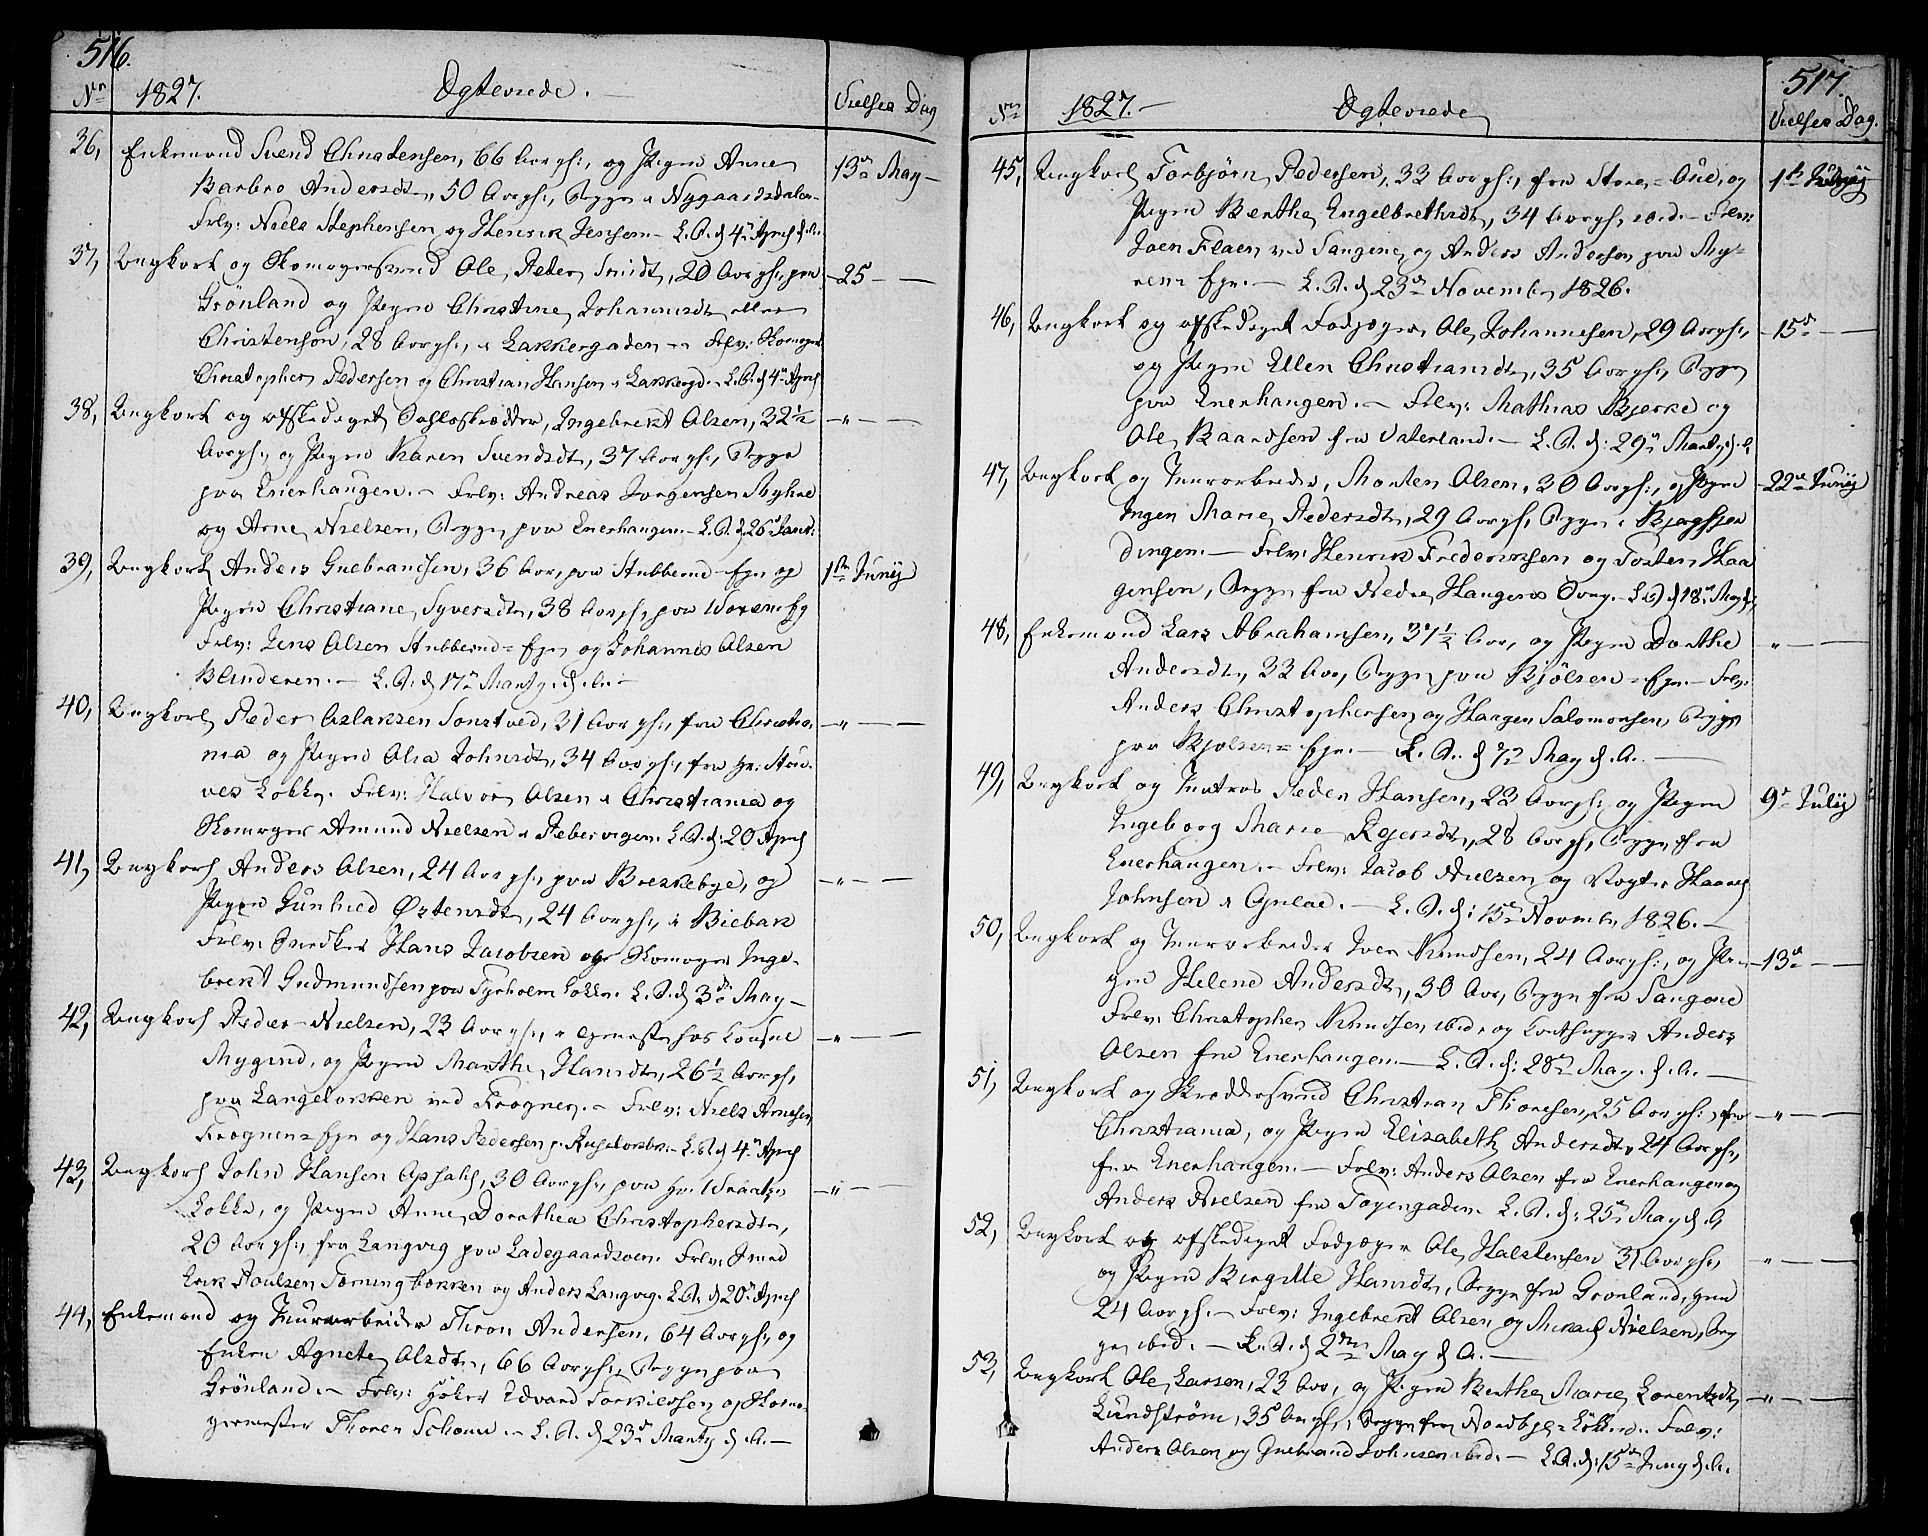 516.
Nr 1827. Ægteviede. Vielses Dag
36, Enkemand Svend Christensen, 66 Aar gl:, og Pigen Anne 13de May
Barbro Andersdtr, 50 Aar gl:, Begge i Nygaardsdalen
Forlv: Niels Stephensen og Henrik Jensen. L. A. d 4de April d. A.
37, Ungkarl og Skomagersvend Ole Peter Smidt, 20 Aar gl:, paa 25
Grönland og Pigen Christine Johannisdtr eller
Christensön, 28 Aar gl:, i Lakkergaden. Forlv: Skomager
Christopher Pedersen og Christian Hansen i Lakkergd. L. A. d 4de April
38, Ungkarl og afskediget Ingebreht Olsen, 32½
Aar gl:, og Pigen Karen Svendsdtr, 37 Aar gl:, Begge
paa Enerhaugen. Forlv: Andreas Jorgensen Myhre
og Arne Nielsen, Begge paa Enerhaugen. L. A. d. 26de
39, Ungkarl Anders Guebrandsen, 36 Aar, paa Stubberud Ejr og 1ste Junij
Pigen Christiane Syversdtr, 38 Aar gl:, paa
Forlv: Jens Olsen Stubberud Ejr og Johannis Olsen
Blinderen. L. A. d 17de Martz d. A.
40, Ungkarl Peder Aslaksen Sonstved, 31 Aar gl:, fra Christia-
nia og Pigen Olia Johnsdtr, 34 Aar gl:, fra Hr:
Lökke. Forlv: Halvor Olsen i Christiania og
Skomager Amund Nielsen i Pebervigen. L. A. d: 20 April
41, Ungkarl Anders Olsen, 24 Aar gl:, paa Breskebye, og
Pigen Gunhild Østensdtr, 24 Aar gl:, i Piebak
Forlv: Snedker Hans Jacobsen og Skomager Inge-
breht Gudmundsen paa Tyrholm Lökke. L. A. d 3de May
42, Ungkarl Peder Nielsen, 23 Aar gl:, i Tjeneste hos Consul
Mygind, og Pigen Marthe Hansdtr, 26½ Aar gl:,
paa Langelökken ved Frogner. Forlv: Niels Arnesen
Frogner Ejr og Hans Pedersen L. A. d 4de April
43, Ungkarl John Hansen Opsahl, 30 Aar gl:, paa Hr:
Lökke, og Pigen Anne Dorothea Christophersdtr,
20 Aar gl:, fra Langvig paa Ladegaardsöen. Forlv:
Erik Poulsen og Anders Langvig. L. A. d 20de April
44, Enkemand og Thron Andersen, 64 Aar gl:, og
Enken Agnete Olsdtr, 66 Aar gl:, Begge paa
Grönland. Forlv: Höker Edvard Torkildsen og Skoma-
germester Thoren Schouw. L. A. d 23de Martz d. A.
517.
Nr 1827. Ægteviede Vielses Dag.
45, Ungkarl Torbjörn Pedersen, 33 Aar gl:, fra Store og 1ste
Pigen Berthe Engelbrethsdtr, 34 Aar gl: ibid. Forlv:
Joen Flaen ved Sangene og Anders Andersen paa My-
rens Ejr. L. A. d 23de Novemb. 1826.
46, Ungkarl og afskediget Fodjæger Ole Johannesen, 29 Aar gl:, 15de
og Pigen Ellen Christiansdtr, 35 Aar gl:, Begge
paa Enerhaugen. Forlv: Mathias Bjerke og
Ole Baardsen fra Vaterland. L. A. d: 29de Martz d. A
47, Ungkarl og Morten Olsen, 30 Aar gl:, og Pigen 22de Junij
Ingen Marie Pedersdtr, 29 Aar gl:, Begge i
dingen. Forlv: Henrik Frederiksen og Torsten Haa
gensen, Begge fra Nedre L. A. d 18de May
48, Enkemand Lars Abrahamsen, 37½ Aar, og Pigen Dorthe
Andersdtr, 33 Aar, Begge paa Bjölsen Ejr. Forlv:
Anders Christophersen og Haagen Salomonsen, Begge
paa Bjölsen Ejr. L. A. d 7de May d. A.
49, Ungkarl og Peder Hansen, 23 Aar gl: og Pigen 9de Julij
Ingeborg Marie 28 Aar gl, Begge fra
Enerhaugen. Forlv: Jacob Nielsen og
Johnsen i L. A. d: 15de Novemb. 1826.
50, Ungkarl og Iver Knudsen, 24 Aar gl:, og Pi- 13de
gen Helene Andersdtr, 30 Aar, Begge fra Sangene
Forlv: Christopher Knudsen ibid. og Anders
Olsen fra Enerhaugen. L. A. d: 28de May d. A.
51, Ungkarl og Skreddersvend Christian Thoresen, 25 Aar gl:, fra
Christiania, og Pigen Elisabeth Andersdtr 24 Aar gl:,
fra Enerhaugen. Forlv: Anders Olsen fra Enerhaugen og
Anders Nielsen fra Töyengaden. L. A. d: 25de May d. A
52, Ungkarl og afskediget Fodjæger Ole Halstensen 31 Aar gl:,
og Pigen Birgitte Hansdtr, Begge fra Grönland, hun
24 Aar gl:. Forlv: Ingebreht Olsen og Nielsen, Beg
ge ibid. L. A. d 2den May d. A.
53, Ungkarl Ole Larsen, 23 Aar, og Pigen Berthe Marie Lorentzdtr
Lundström, 35 Aar gl:, Begge fra Nordbye Lökken. Forlv:
Anders Olsen og Guebrand Johnsen ibid. L. A. d: 15de Juny d. A.